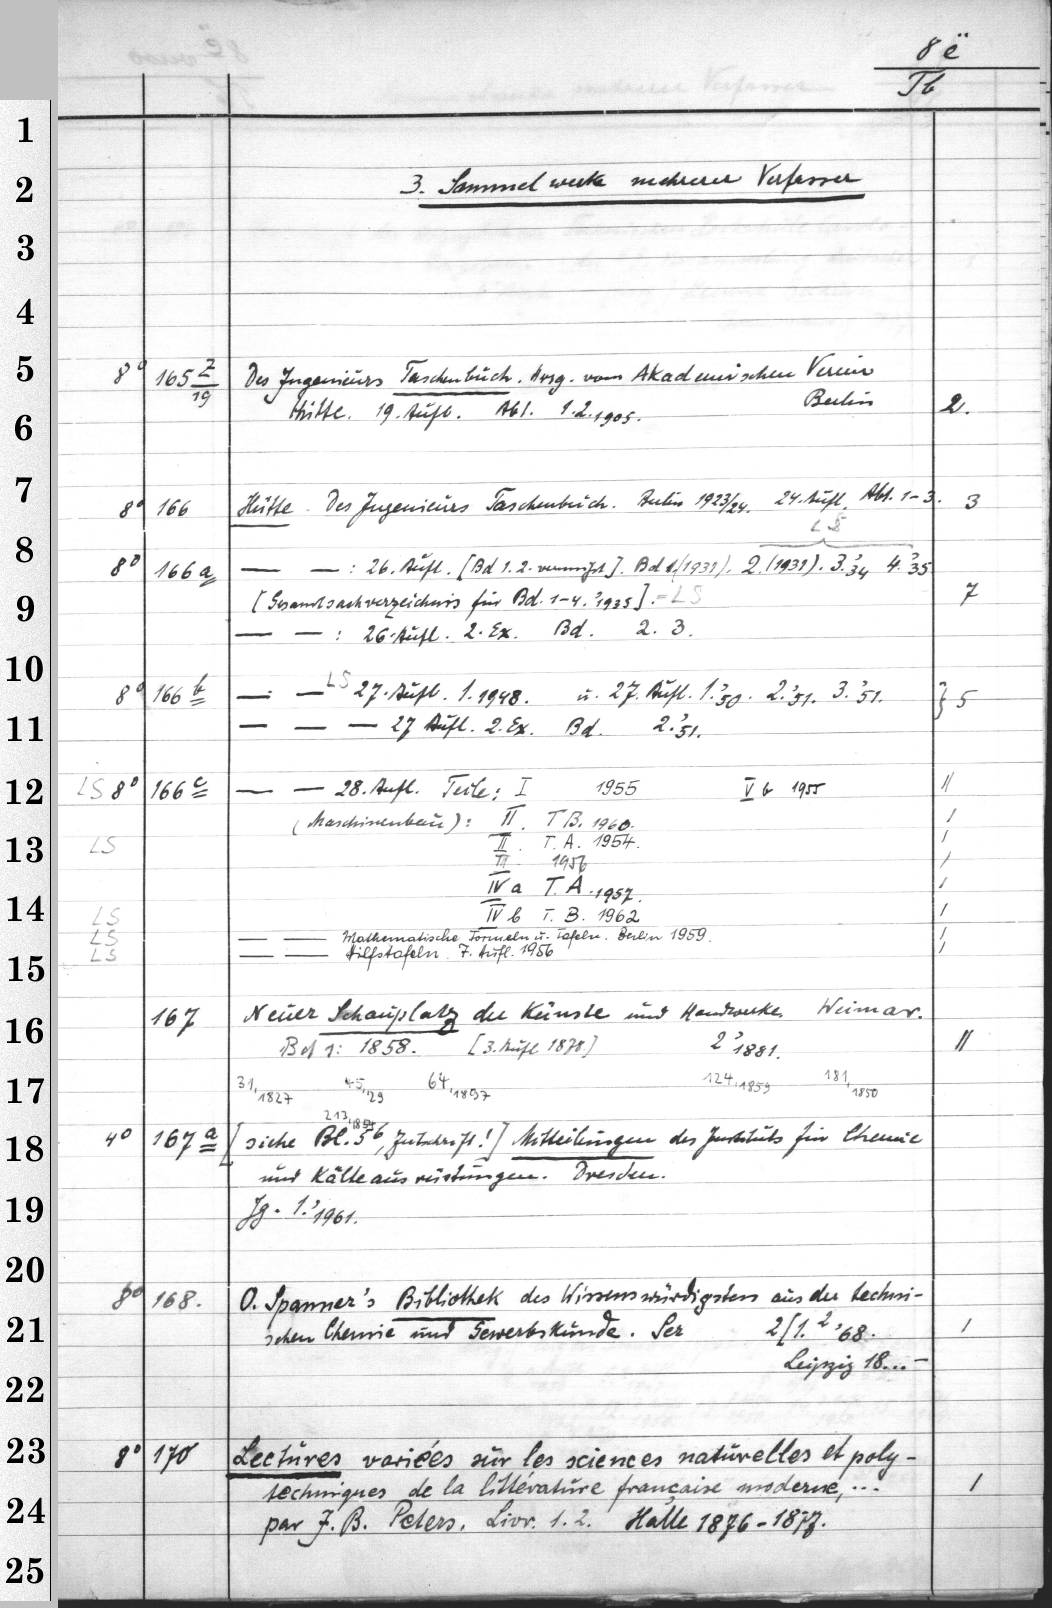 8 ë
Tb
1
2
3
4
5
6
7
8
9
10
11
12
13
14
15
16
17
18
19
20
21
22
23
24
25
3. Sammelwerke mehrerer Verfasser
8° 165 Z/19 Des Ingenieurs Taschenbuch. Hrsg. vom Akademischen Verein
Hütte. 19. Aufl. Abt. 1.2. 1905. Berlin 2.
8° 166 Hütte. Des Ingenieurs Taschenbuch. Berlin 1923/24. 24. Aufl. Abt. 1-3. 3
LS
8° 166a — — : 26. Aufl. [Bd 1.2. vermisst]. Bd 1.(1931). 2.(1931). 3.'34 4.'35
[Gesamtsachverzeichnis für Bd. 1-4.'1935]. = LS 7
— — : 26. Aufl. 2. Ex. Bd. 2. 3.
8° 166b — — LS 27. Aufl. 1. 1948. u. 27. Aufl. 1.'50. 2.'51. 3.'51. } 5
— — — 27 Aufl. 2. Ex. Bd. 2.'51.
LS 8° 166c — — 28. Aufl. Teile: I 1955 V b 1955 II
(Maschinenbau): II. T B. 1960. I
LS II. T. A. 1954. I
III 1956 I
IV a T. A. 1957. I
LS IV b T. B. 1962 I
LS — — Mathematische Formeln u. Tafeln. Berlin 1959. I
LS — — Hilfstafeln. 7. Aufl. 1956 I
167 Neuer Schauplatz der Künste und Handwerke. Weimar.
Bd 1: 1858. [3. Aufl 1878] 2'1881. II
31,1827 45,'29 64,1837 124,1859 181,1850
213,1854
4° 167a [siehe Bl. 56, Zeitschrift!] Mitteilungen des Instituts für Chemie
und Kälteausrüstungen. Dresden.
Jg. 1.'1961.
8° 168. O. Spamer's Bibliothek des Wissenswürdigsten aus der techni-
schen Chemie und Gewerbskunde. Ser 2[1.2'68. I
Leipzig 18...-
8° 170 Lectures variées sur les sciences naturelles et poly-
techniques de la littérature française moderne, ... I
par J. B. Peters. Livr. 1. 2. Halle 1876-1877.